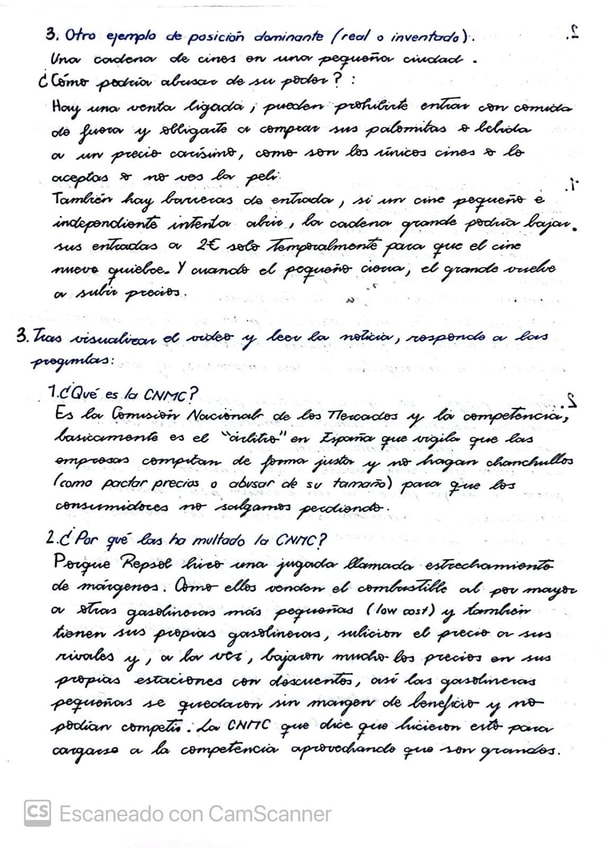 3. Otro ejemplo de posición dominante (real o inventado).
Una cadena de cines en una pequeña ciudad.
¿Cómo podría abusar de su poder?:
Hay una venta ligada, pueden prohibirte entrar con comida
de fuera y obligarte a comprar sus palomitas o bebida
a un precio carísimo, como son los únicos cines o lo
aceptas o no ves la peli.
También hay barreras de entrada, si un cine pequeño e
independiente intenta abrir, la cadena grande podría bajar
sus entradas a 2€ solo temporalmente para que el cine
nuevo quiebre. Y cuando el pequeño cierra, el grande vuelve
a subir precios.
3. Tras visualizar el video y leer la noticia, responde a las
preguntas:
1. ¿Qué es la CNMC?
Es la Comisión Nacional de los Mercados y la competencia,
basicamente es el "árbitro" en España que vigila que las
empresas compitan de forma justa y no hagan chanchullos
(como pactar precios o abusar de su tamaño) para que los
consumidores no salgamos perdiendo.
2. ¿Por qué las ha multado la CNMC?
Porque Repsol hizo una jugada llamada estrechamiento
de márgenes. Como ellos venden el combustible al por mayor
a otras gasolineras más pequeñas (low cost) y también
tienen sus propias gasolineras, subieron el precio a sus
rivales y, a la vez, bajaron mucho los precios en sus
propias estaciones con descuentos, así las gasolineras
pequeñas se quedaron sin margen de beneficio y no
podían competir. La CNMC que dice que hicieron esto para
cargarse a la competencia aprovechando que son grandes.
CS Escaneado con CamScanner